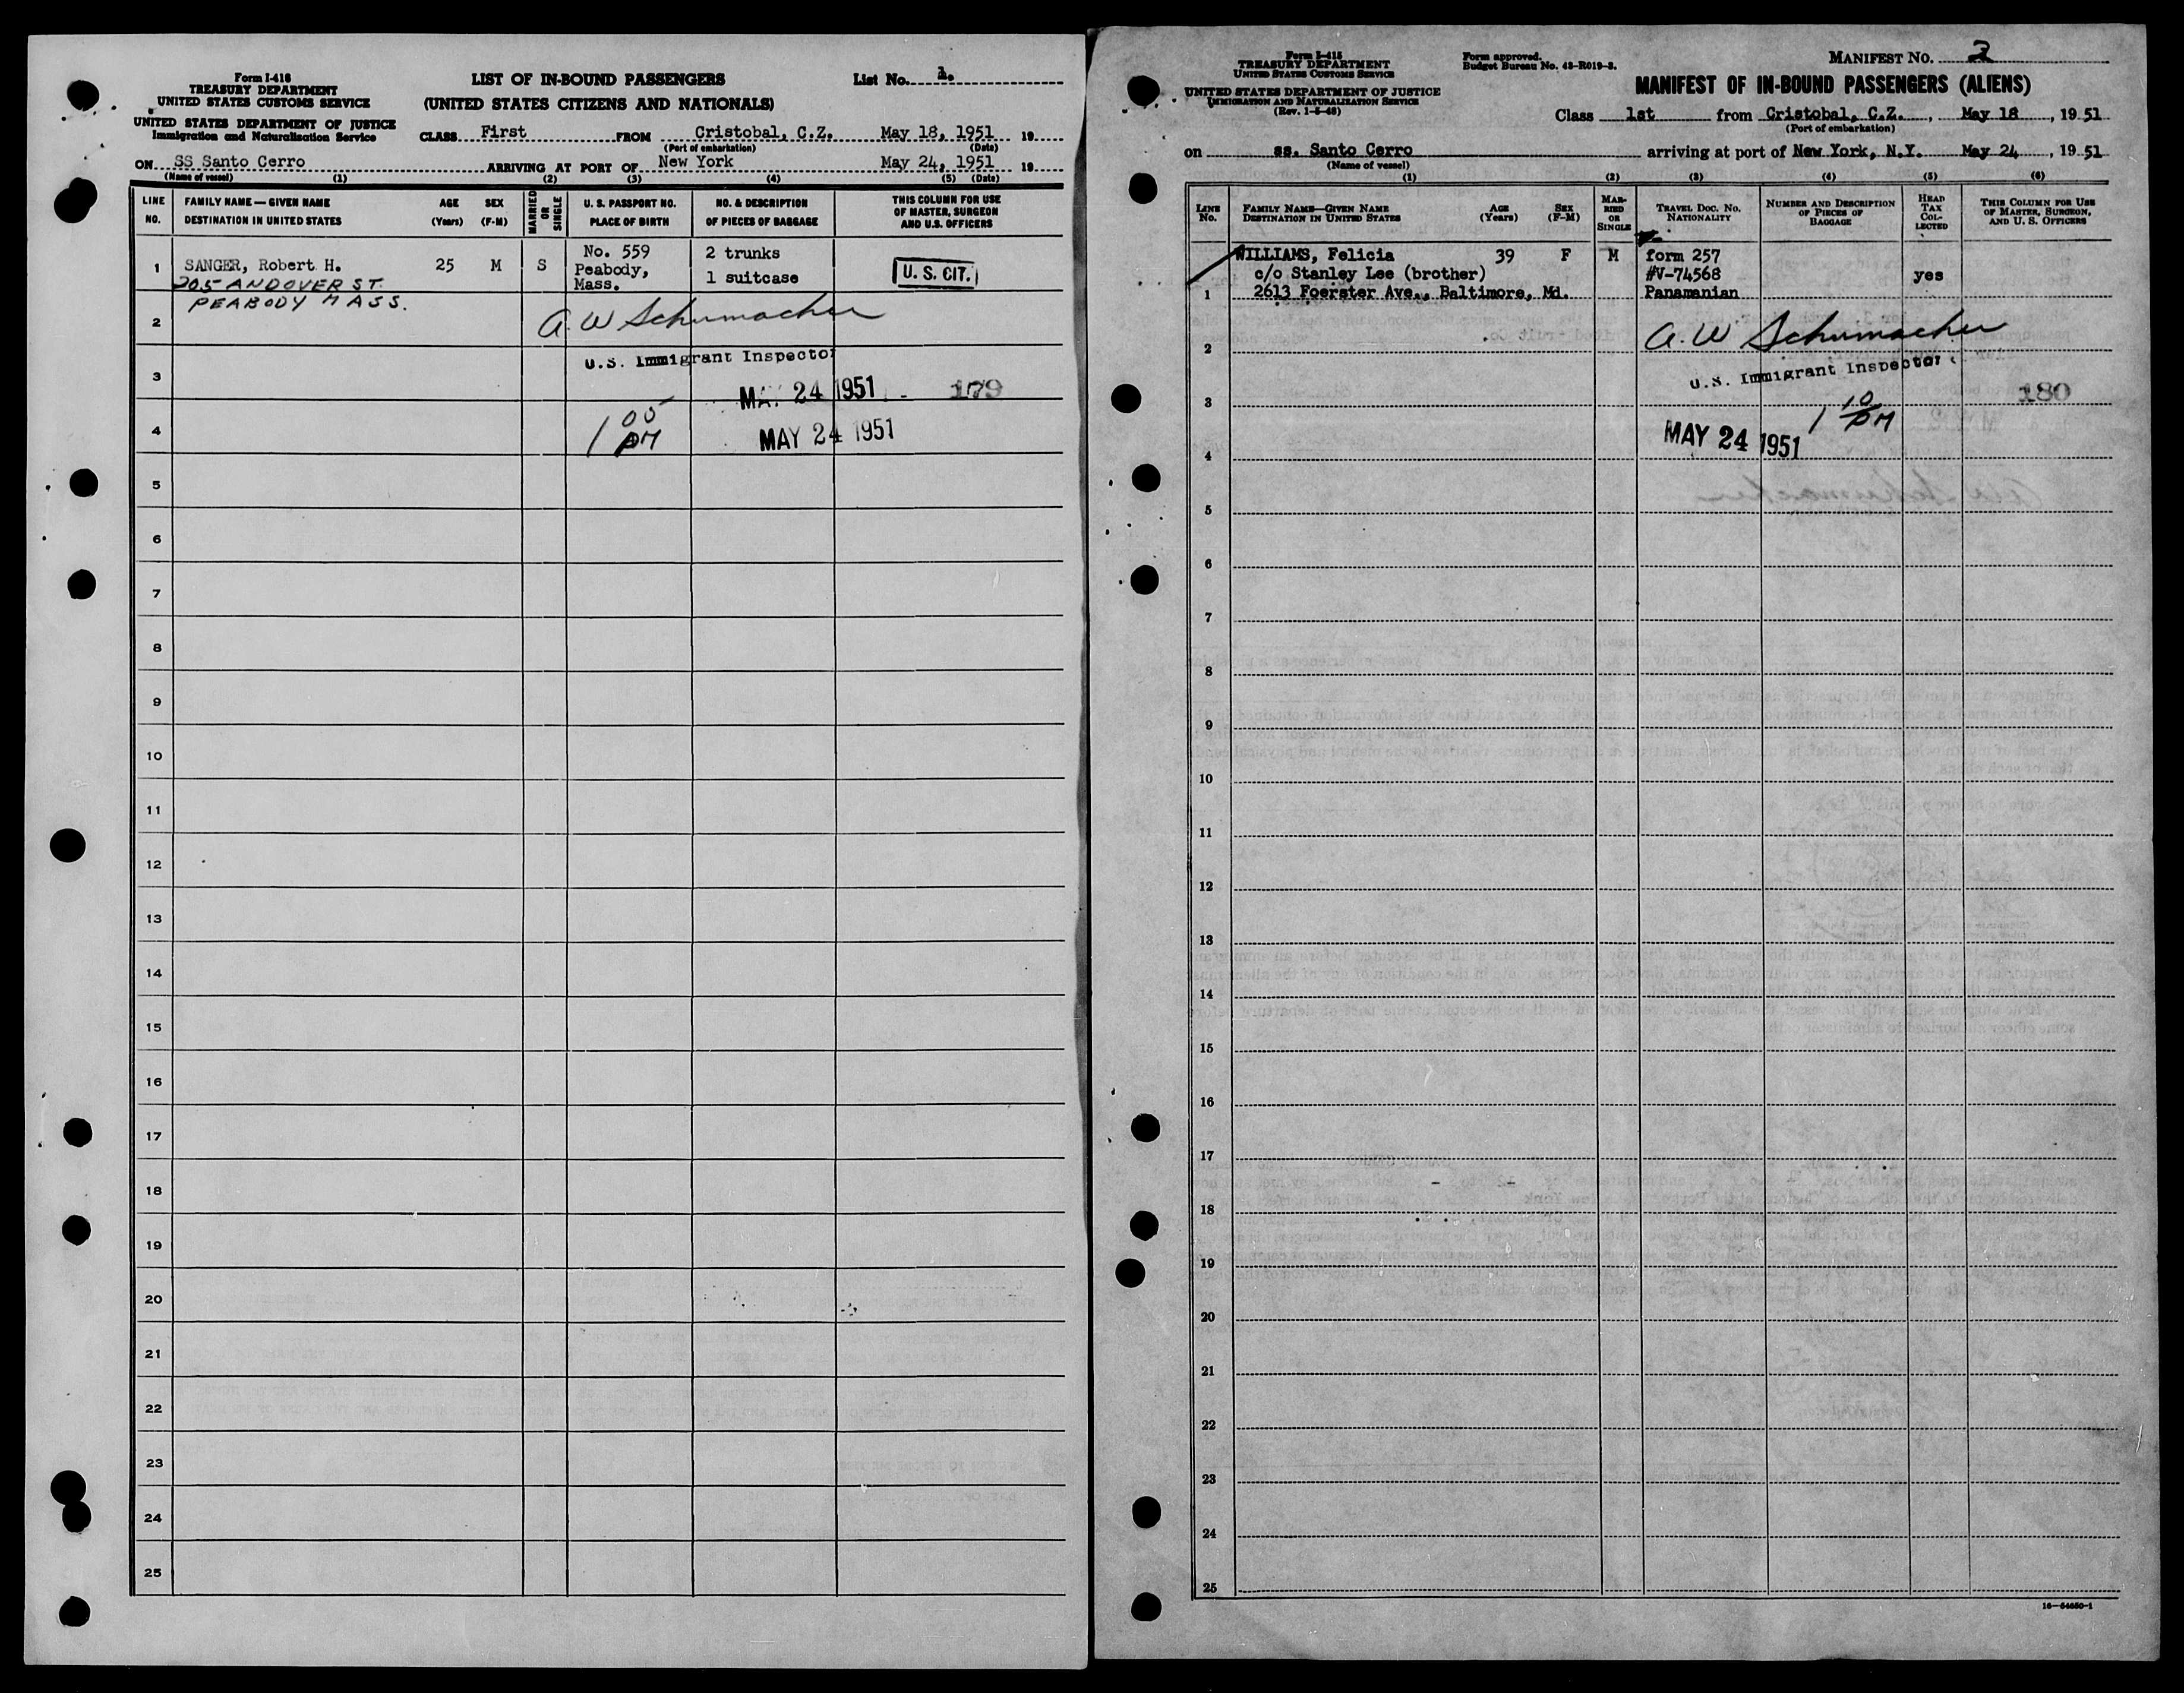 Form I-416
TREASURY DEPARTMENT
UNITED STATES CUSTOMS SERVICE
UNITED STATES DEPARTMENT OF JUSTICE
Immigration and Naturalization Service
LIST OF IN-BOUND PASSENGERS
(UNITED STATES CITIZENS AND NATIONALS)
List No. 1.
CLASS First FROM Cristobal, C.Z. May 18, 1951 19
(Port of embarkation) (Date)
ON SS Santo Cerro ARRIVING AT PORT OF New York May 24, 1951 19
(Name of vessel) (1) (2) (3) (4) (5) (Date)
LINE NO.
FAMILY NAME — GIVEN NAME
DESTINATION IN UNITED STATES
AGE (Years)
SEX (F-M)
MARRIED OR SINGLE
U. S. PASSPORT NO.
PLACE OF BIRTH
NO. & DESCRIPTION
OF PIECES OF BAGGAGE
THIS COLUMN FOR USE
OF MASTER, SURGEON
AND U.S. OFFICERS
1 SANGER, Robert H. 25 M S
No. 559
Peabody,
Mass.
2 trunks
1 suitcase
U. S. CIT.
205 ANDOVER ST
PEABODY MASS.
A. W Schumacher
U.S. Immigrant Inspector
MAY 24 1951 179
1 05 PM
MAY 24 1951
2
3
4
5
6
7
8
9
10
11
12
13
14
15
16
17
18
19
20
21
22
23
24
25
Form I-415
TREASURY DEPARTMENT
UNITED STATES CUSTOMS SERVICE
UNITED STATES DEPARTMENT OF JUSTICE
IMMIGRATION AND NATURALIZATION SERVICE
(Rev. 1-5-48)
Form approved.
Budget Bureau No. 43-R019-3.
MANIFEST No. 2
MANIFEST OF IN-BOUND PASSENGERS (ALIENS)
Class 1st from Cristobal, C.Z., May 18, 19 51
(Port of embarkation)
on ss. Santo Cerro arriving at port of New York, N.Y. May 24, 19 51
(Name of vessel)
(1) (2) (3) (4) (5) (6)
LINE No.
FAMILY NAME—GIVEN NAME
DESTINATION IN UNITED STATES
AGE (Years)
SEX (F-M)
MARRIED OR SINGLE
TRAVEL DOC. NO.
NATIONALITY
NUMBER AND DESCRIPTION
OF PIECES OF
BAGGAGE
HEAD TAX COLLECTED
THIS COLUMN FOR USE
OF MASTER, SURGEON,
AND U. S. OFFICERS
WILLIAMS, Felicia 39 F M form 257
c/o Stanley Lee (brother) #V-74568 yes
1 2613 Foerster Ave., Baltimore, Md. Panamanian
A. W Schumacher
U.S. Immigrant Inspector
180
1 10 PM
MAY 24 1951
2
3
4
5
6
7
8
9
10
11
12
13
14
15
16
17
18
19
20
21
22
23
24
25